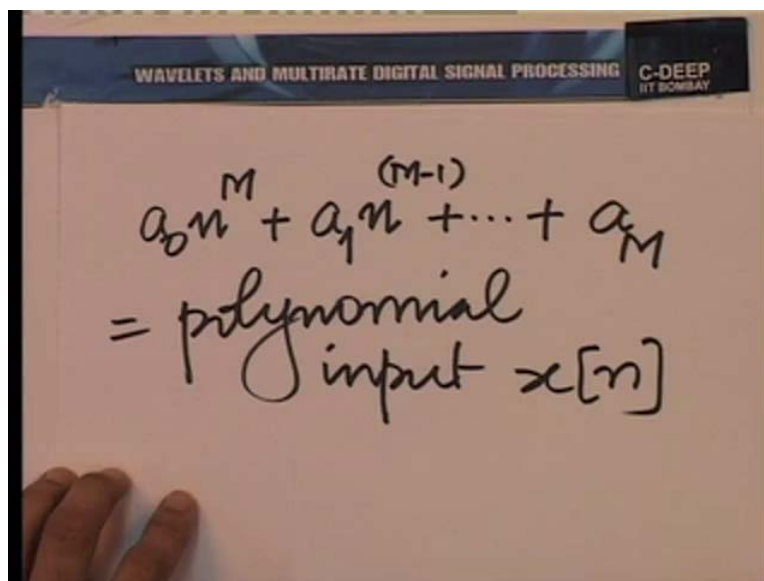 WAVELETS AND MULTIRATE DIGITAL SIGNAL PROCESSING
C-DEEP
IIT BOMBAY
a₀n^M + a₁n^(M-1) + ... + a_M
= polynomial
input x[n]